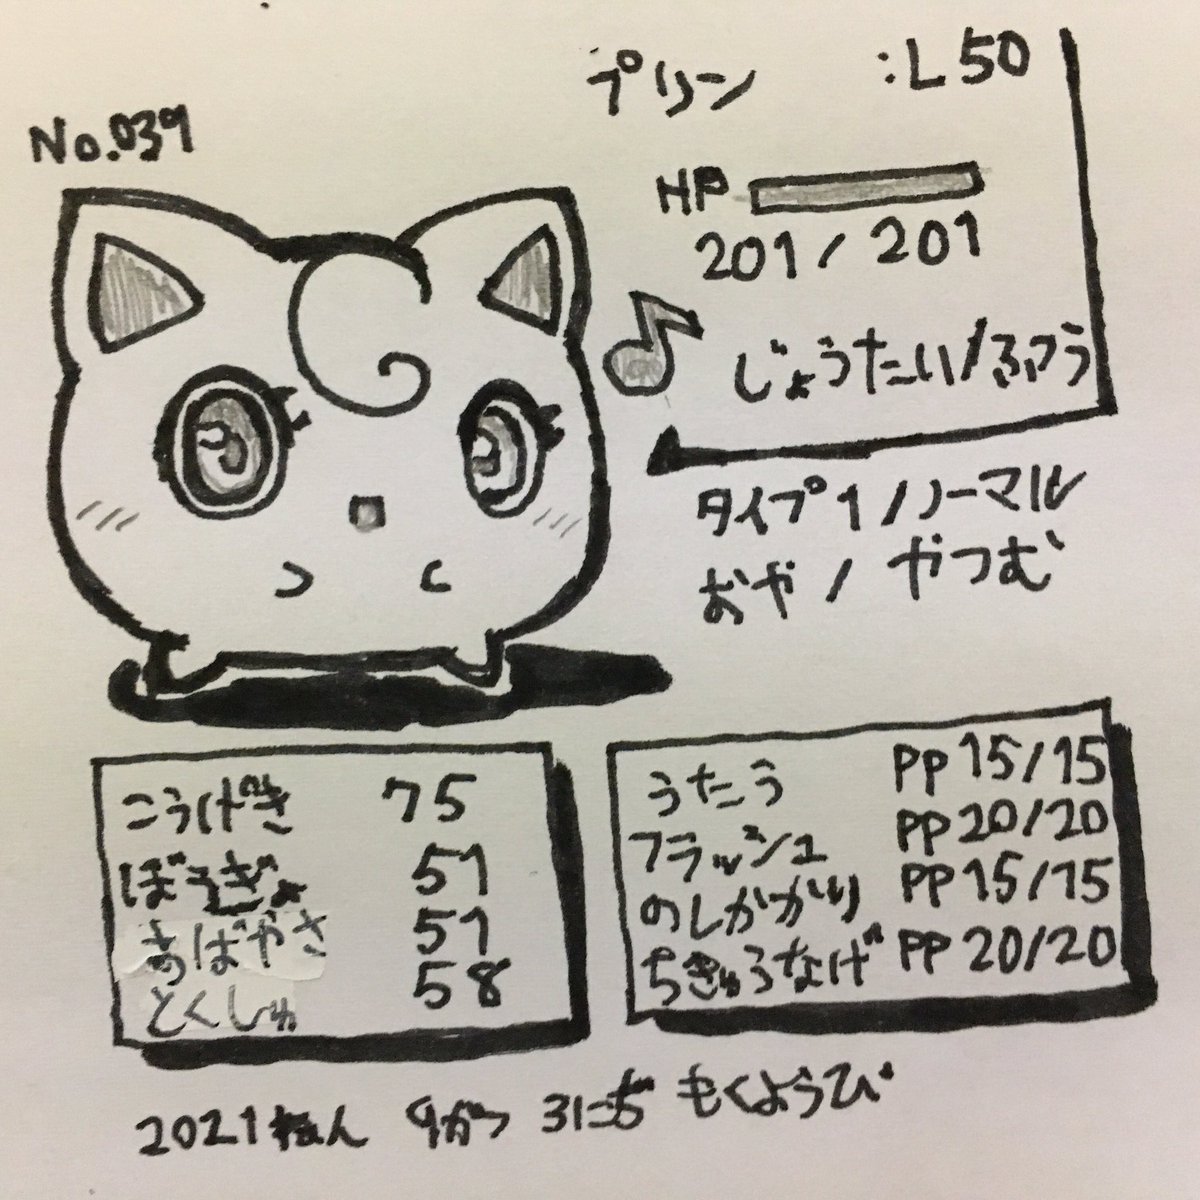 No.039
プリン :L50
HP
201/201
じょうたい/ふつう
タイプ1/ノーマル
おや/やつむ
こうげき 75
ぼうぎょ 51
すばやさ 51
とくしゅ 58
うたう PP 15/15
フラッシュ PP 20/20
のしかかり PP 15/15
ちきゅうなげ PP 20/20
2021ねん 9がつ 3にち もくようび